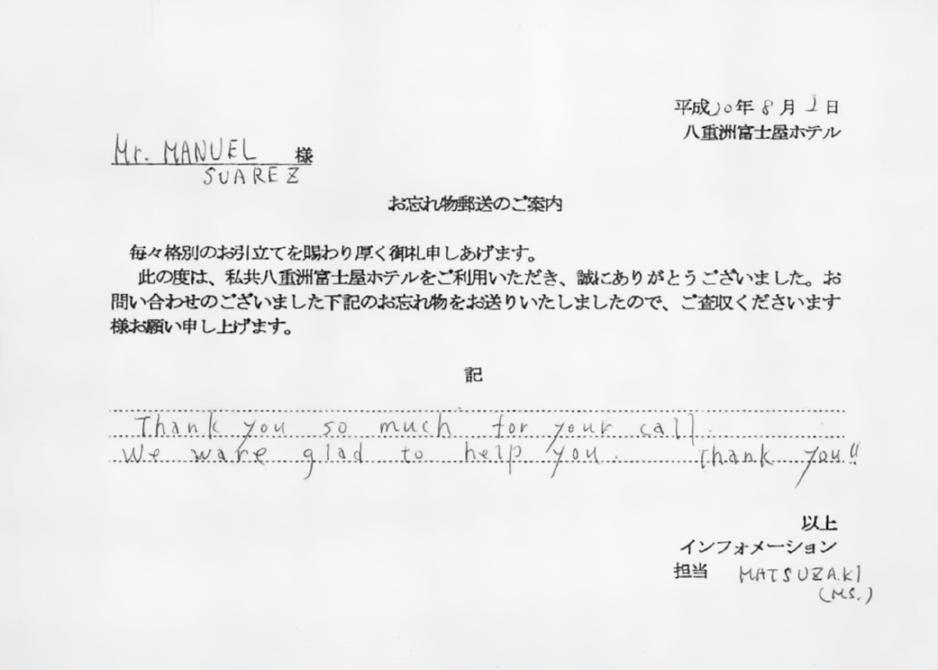 平成20年8月1日
八重洲富士屋ホテル
Mr. MANUEL 様
SUAREZ
お忘れ物郵送のご案内
毎々格別のお引立てを賜わり厚く御礼申しあげます。
此の度は、私共八重洲富士屋ホテルをご利用いただき、誠にありがとうございました。お
問い合わせのございました下記のお忘れ物をお送りいたしましたので、ご査収くださいます
様お願い申し上げます。
記
Thank you so much for your call.
We ware glad to help you. Thank you!!
以上
インフォメーション
担当 MATSUZAKI
(MS.)